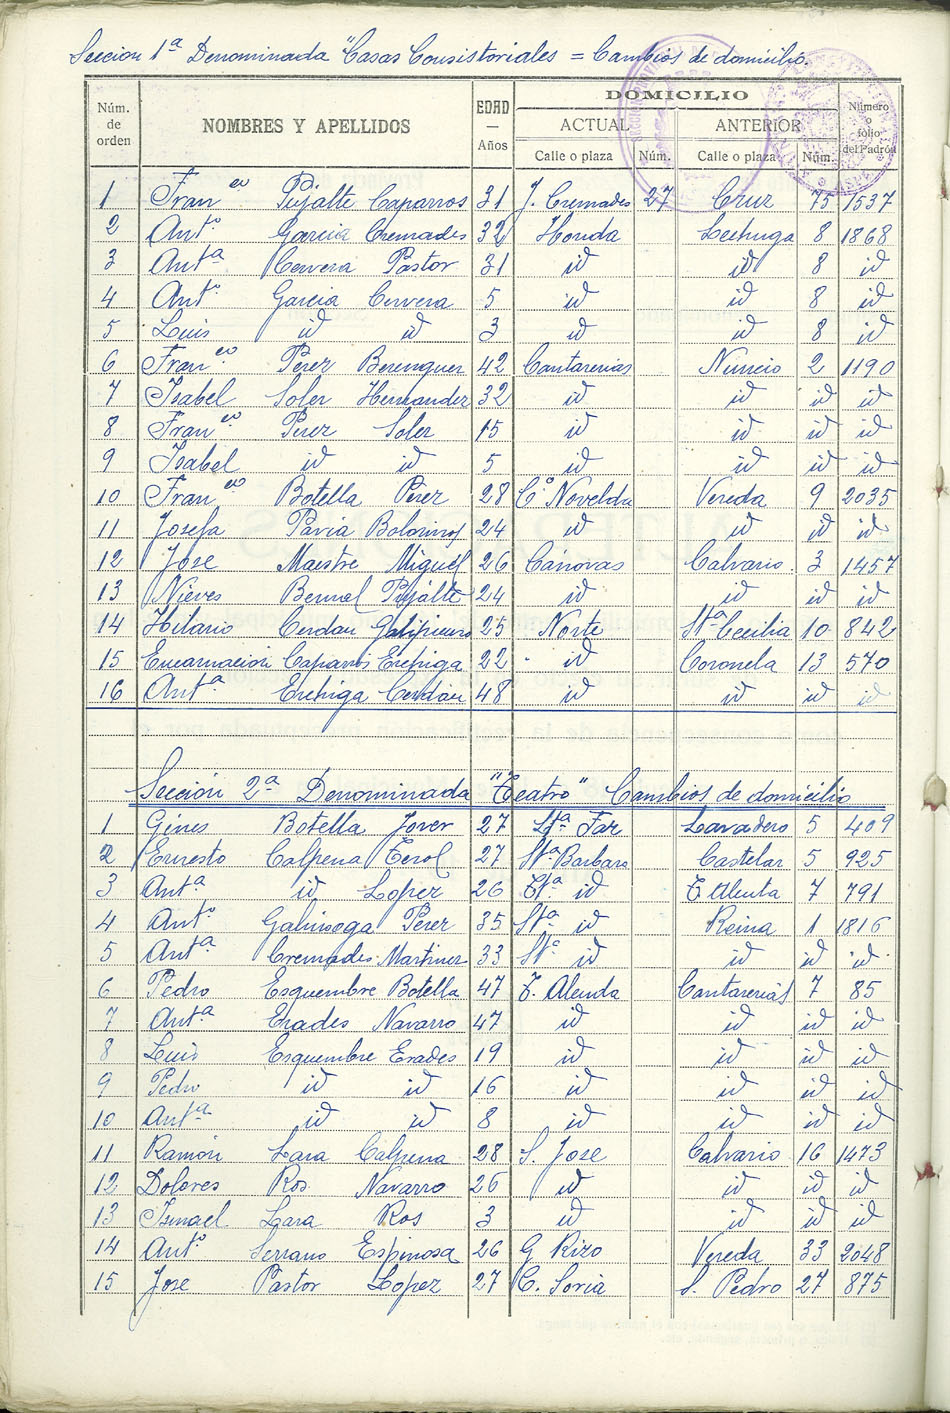 Seccion 1ª Denominada "Casas Consistoriales = Cambios de domicilio.
Núm. de orden NOMBRES Y APELLIDOS EDAD — Años DOMICILIO Número o folio del Padrón
ACTUAL ANTERIOR
Calle o plaza Núm. Calle o plaza Núm.
1 Franco Pujalte Caparros 31 J. Cremades 27 Cruz 75 1537
2 Antº Garcia Cremades 32 Honda Lechuga 8 1868
3 Antª Cervera Pastor 31 id id 8 id
4 Antº Garcia Cervera 5 id id 8 id
5 Luis id id 3 id id 8 id
6 Franco Perez Berenguer 42 Cantarerias Nuncio 2 1190
7 Isabel Soler Hernandez 32 id id id id
8 Franco Perez Soler 15 id id id id
9 Isabel id id 5 id id id id
10 Franco Botella Pérez 28 Cº Novelda Vereda 9 2035
11 Josefa Pavia 24 id id id id
12 Jose Maestre Miguel 26 Cánovas Calvario 3 1457
13 Nieves Bernal Pujalte 24 id id id id
14 Hilario Cerdan 25 Norte Stª Cecilia 10 842
15 Encarnacion Caparros 22 id Coronela 13 570
16 Antª Cerdan 48 id id id id
Sección 2ª Denominada "Teatro" Cambios de domicilio
1 Gines Botella Jover 27 Stª Faz Lavadero 5 409
2 Ernesto Calpena Terol 27 Stª Barbara Castelar 5 925
3 Antª id Lopez 26 Stª id 7 791
4 Antº Galinsoga Perez 35 Stª id Reina 1 1816
5 Antª Cremades Martinez 33 Stª id id id id
6 Pedro Esquembre Botella 47 T. Alenda Cantarerias 7 85
7 Antª Erades Navarro 47 id id id id
8 Luis Esquembre Erades 19 id id id id
9 Pedro id id 16 id id id id
10 Antª id id 8 id id id id
11 Ramón Lara Calpena 28 S. Jose Calvario 16 1473
12 Dolores Ros Navarro 26 id id id id
13 Ismael Lara Ros 3 id id id id
14 Antº Serrano Espinosa 26 G Rizo Vereda 33 2048
15 Jose Pastor Lopez 27 C. Soria S. Pedro 27 875